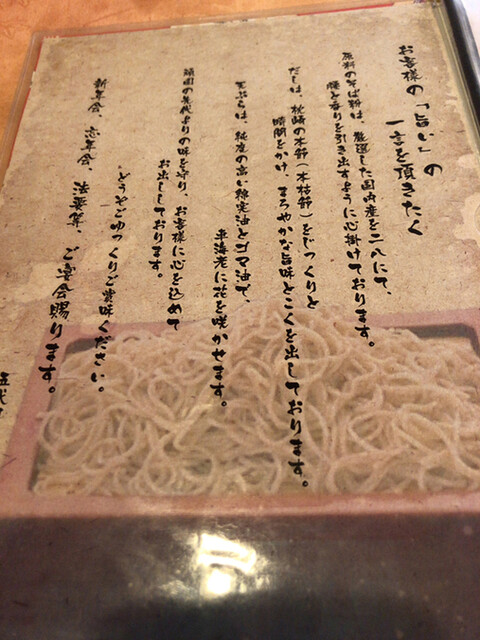 お客様の「旨い」の
一言を頂きたく
原料のそば粉は、厳選した国内産を二八にて、
腰と香りを引き出すように心掛けております。
だしは、枕崎の本節(本枯節)をじっくりと
時間をかけ、まろやかな旨味とこくを出しております。
天ぷらは、純度の高い綿実油とゴマ油で、
車海老に花を咲かせます。
頑固の先代よりの味を守り、お客様に心を込めて
お出ししております。
どうぞごゆっくりご賞味ください。
新年会、忘年会、法要等、ご宴会賜ります。
五代